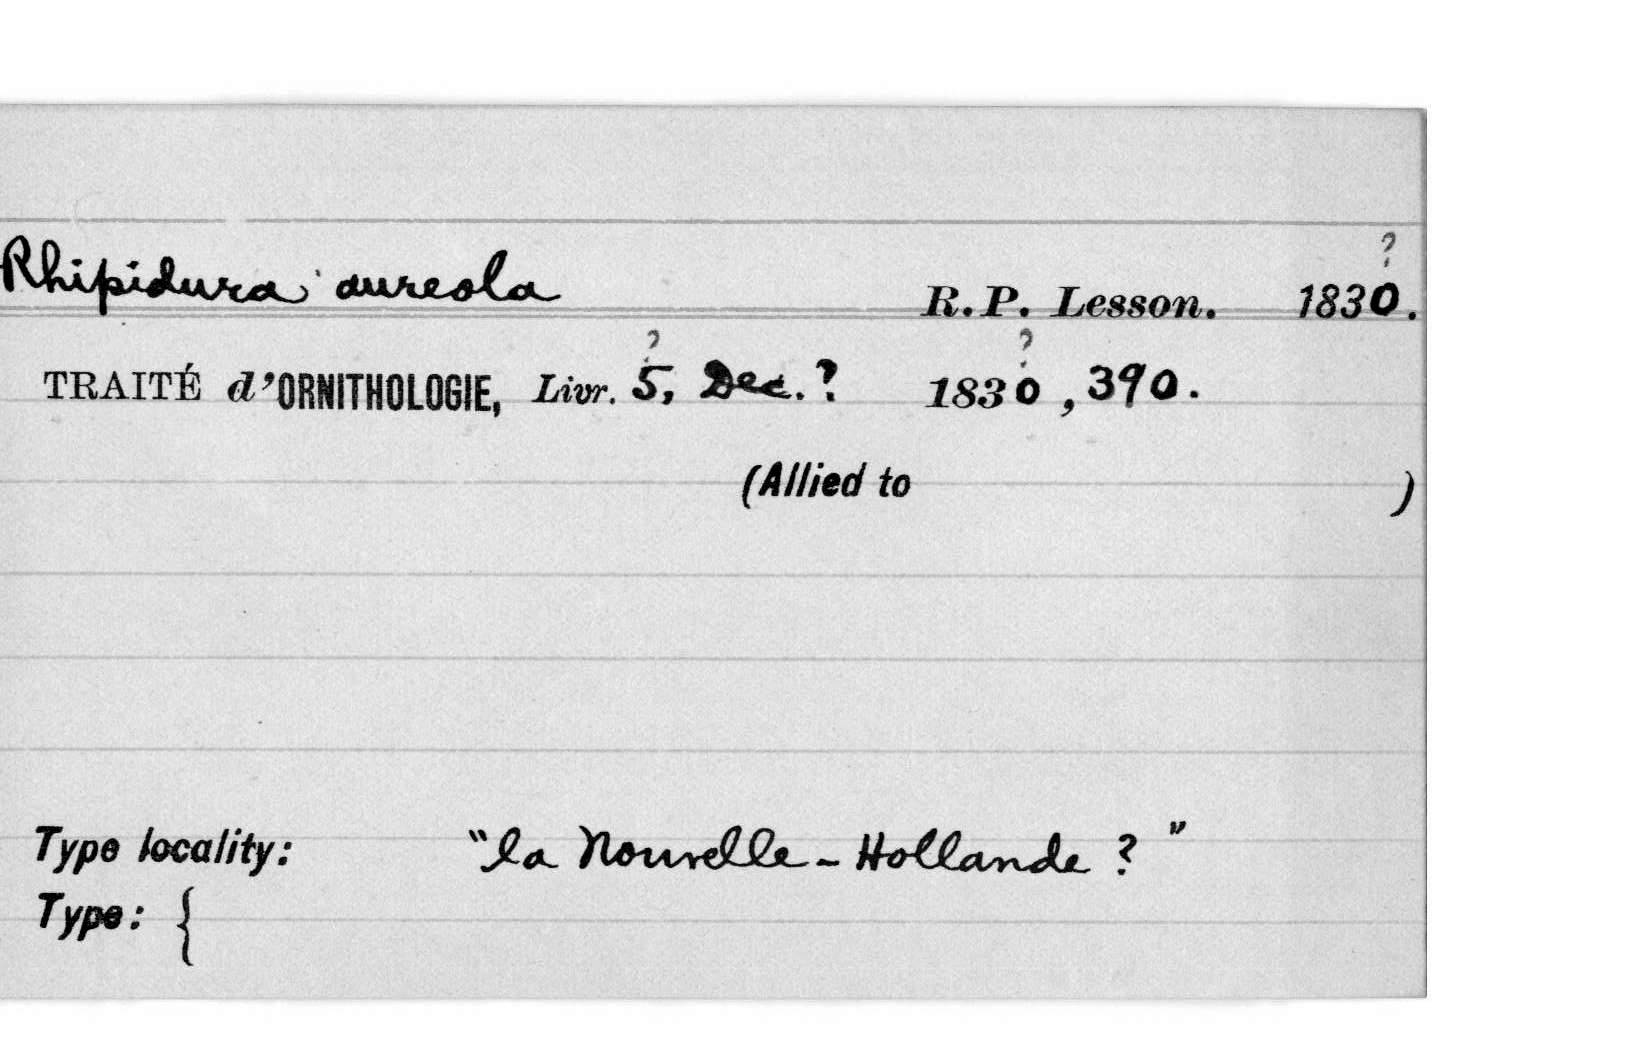 ?
Rhipidura aureola R.P. Lesson. 1830.
? ?
TRAITÉ d'ORNITHOLOGIE, Livr. 5, Dec.? 1830, 390.
(Allied to )
Type locality: "la Nouvelle-Hollande ?"
Type: {